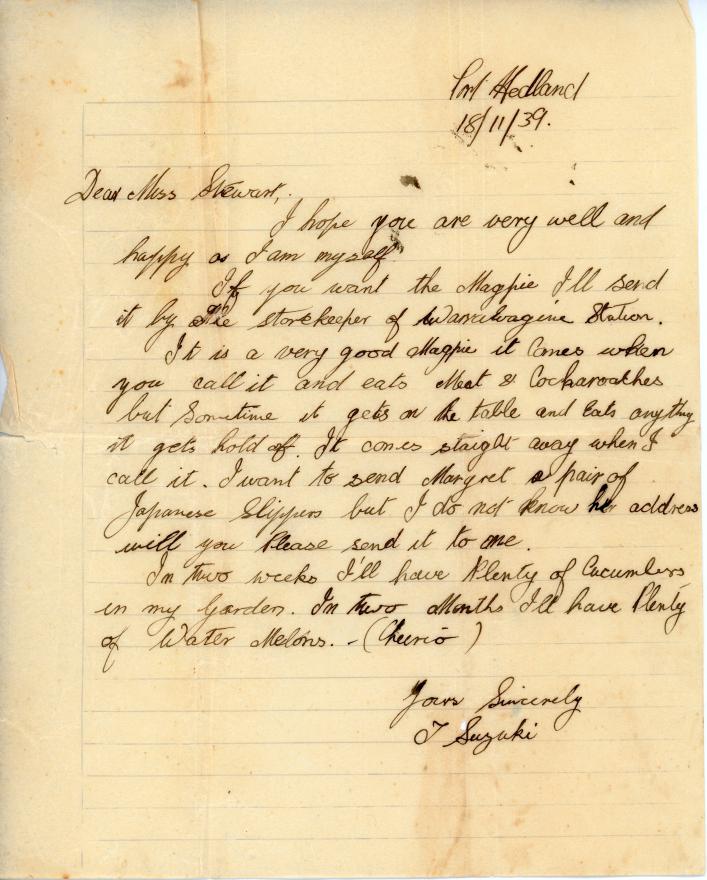 Port Hedland
18/11/39.
Dear Miss Stewart,.
I hope you are very well and
happy as I am myself.
If you want the Magpie I'll send
it by the storekeeper of Warrawagine Station.
It is a very good Magpie it Comes when
you call it and eats Meat & Cockaroaches
but Sometime it gets on the table and Eats anything
it gets hold of. It comes staight away when I
call it. I want to send Margret a pair of
Japanese Slippers but I do not know her address
will you Please send it to me.
In two weeks I'll have Plenty of Cucumbers
in my Garden. In two Months I'll have Plenty
of Water Melons. - (Cheerio )
Yours Sincerely
T Suzuki